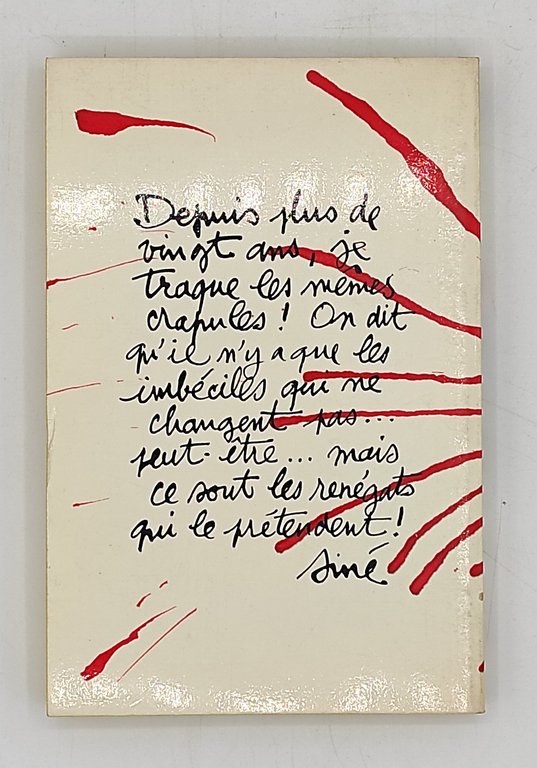 Depuis plus de
vingt ans, je
traque les mêmes
crapules ! On dit
qu'il n'y a que les
imbéciles qui ne
changent pas...
peut-être... mais
ce sont les renégats
qui le prétendent !
Siné